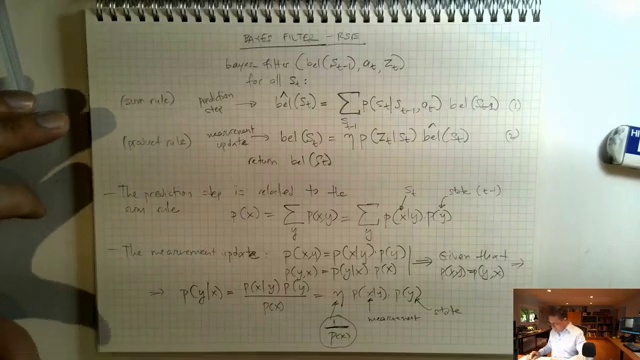 BAYES FILTER - RSE
bayes filter (bel(S_{t-1}), a_t, Z_t)
for all S_t:
(sum rule) prediction step → b̂el(S_t) = Σ_{S_{t-1}} p(S_t|S_{t-1}, a_t) bel(S_{t-1}) (1)
(product rule) measurement update → bel(S_t) = η p(Z_t|S_t) b̂el(S_t) (2)
return bel(S_t)
S_t state (t-1)
- The prediction step is related to the
sum rule p(x) = Σ_y p(x,y) = Σ_y p(x|y) p(y)
- The measurement update: p(x,y) = p(x|y) · p(y)
p(y,x) = p(y|x) p(x) ⟹ Given that p(x,y) = p(y,x) ⟹
⟹ p(y|x) = p(x|y) p(y) / p(x) = η p(x|y) · p(y)
measurement state
1/p(x)